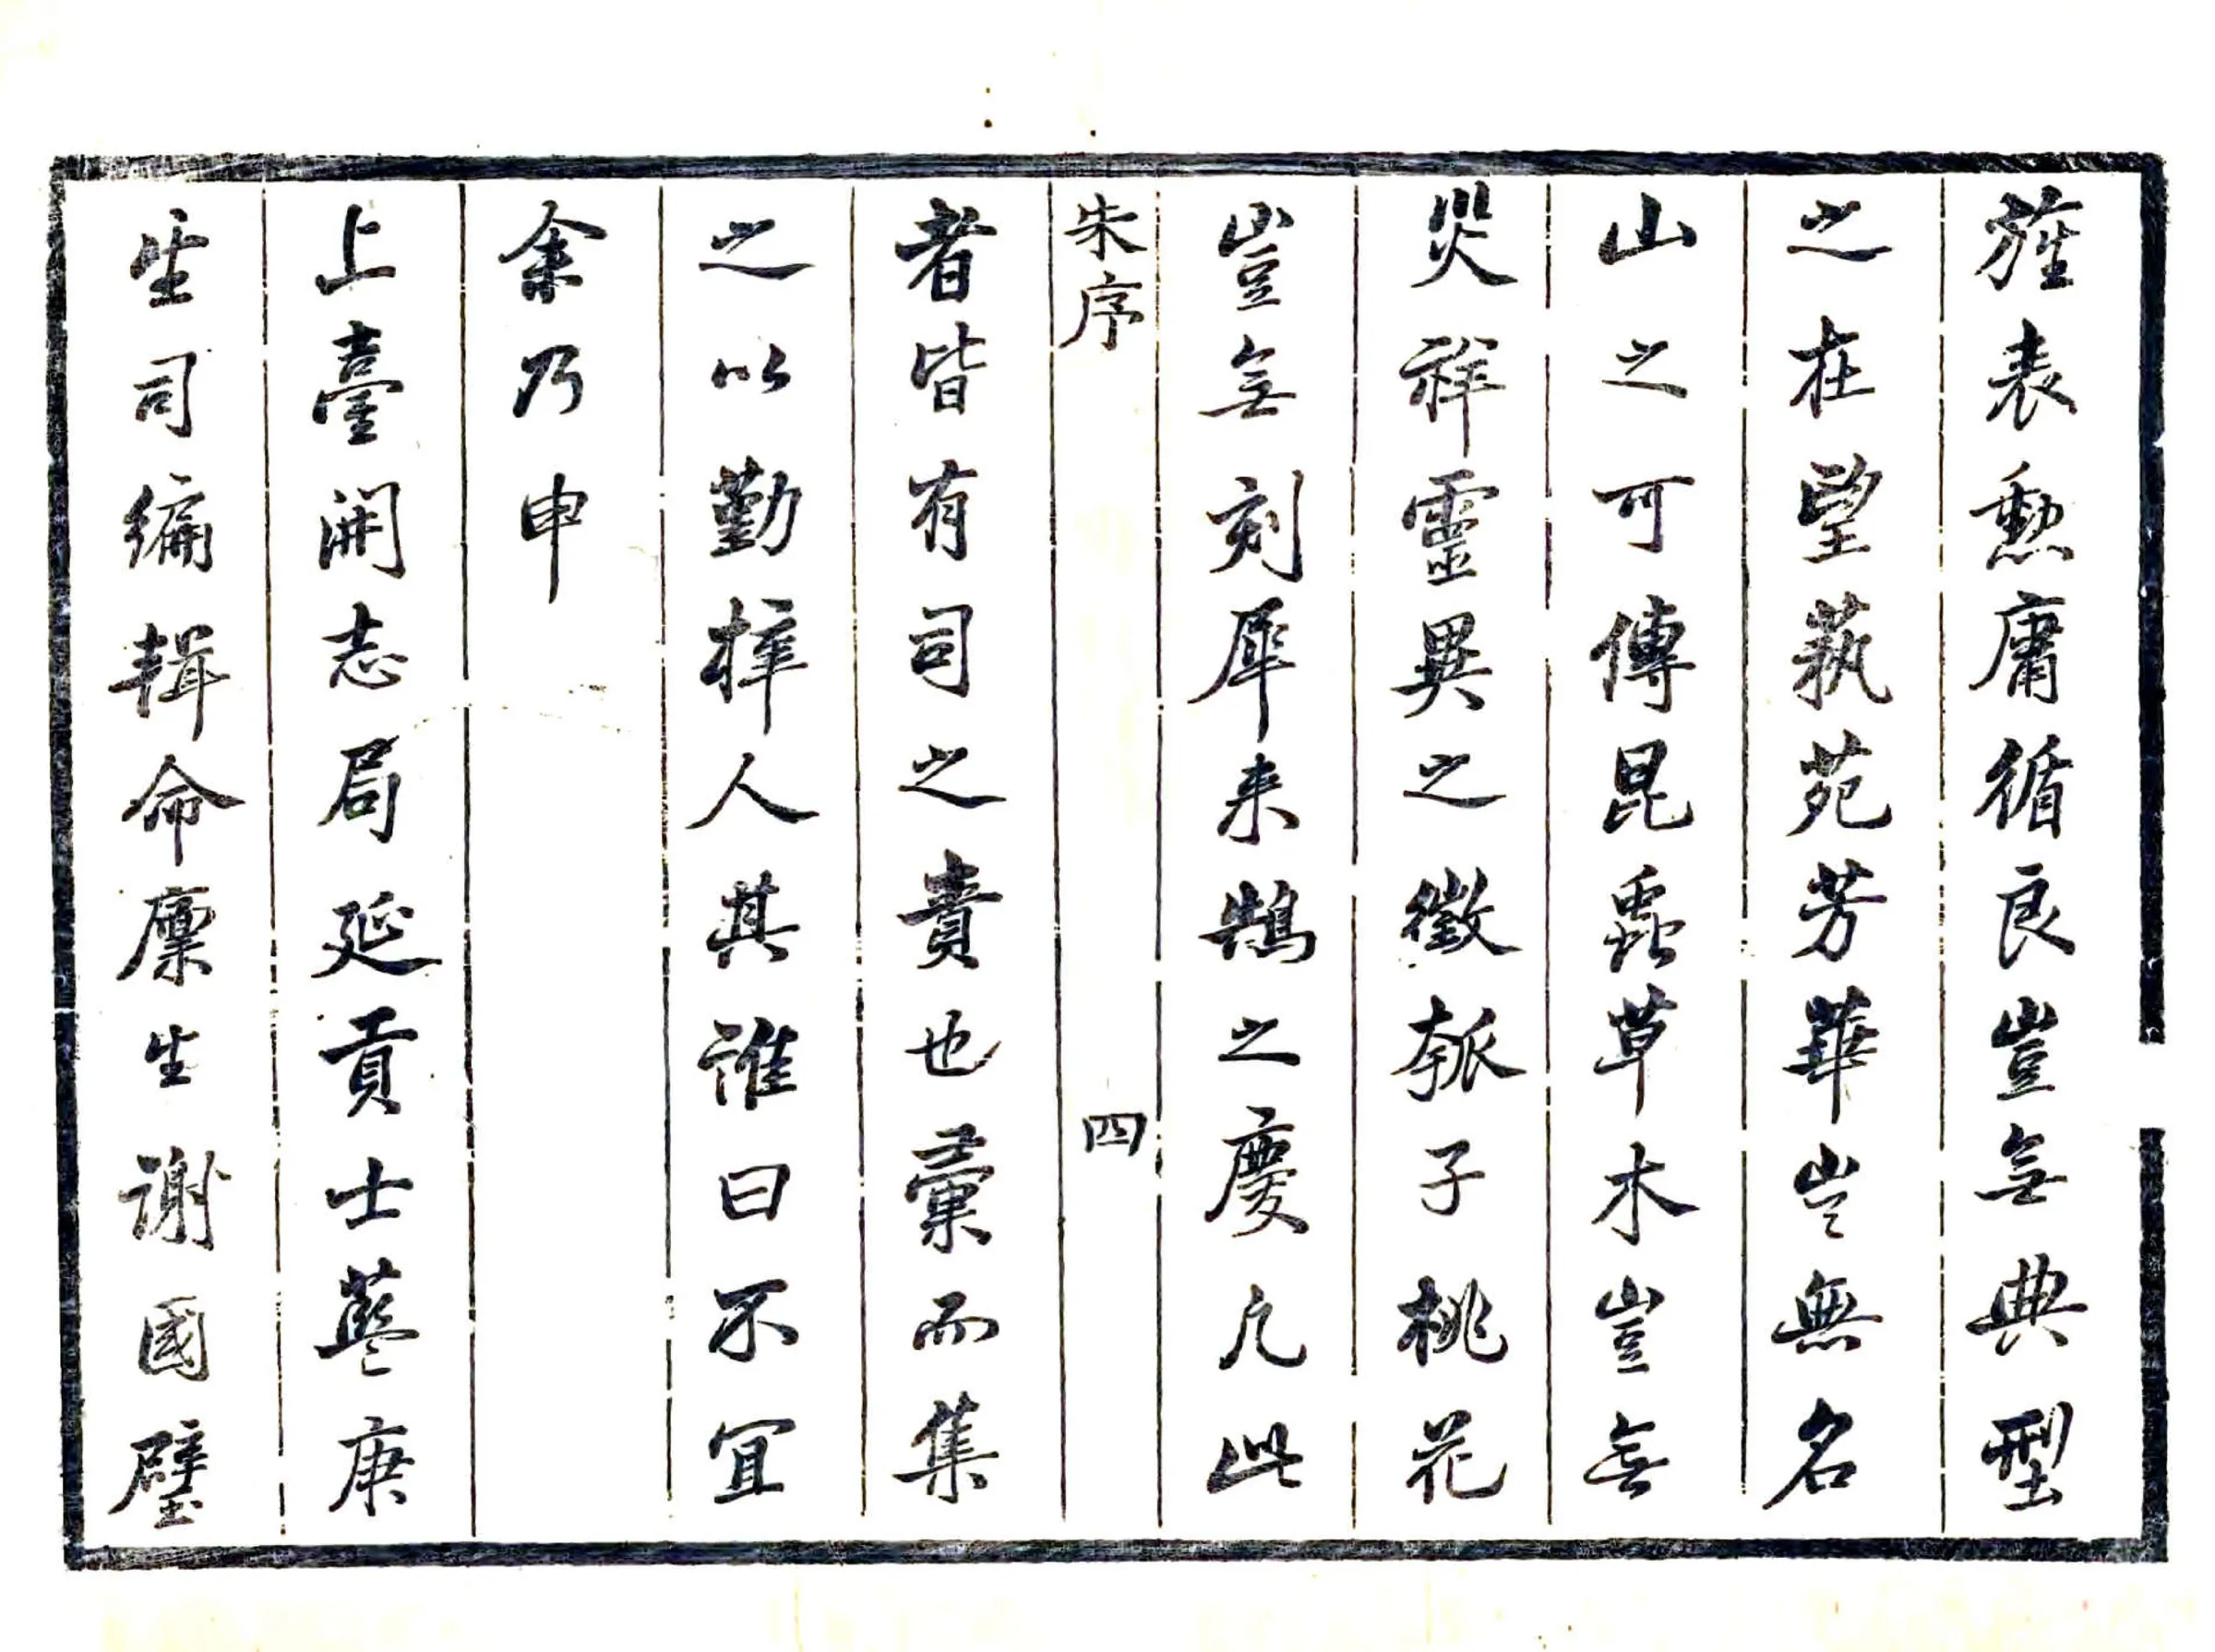 旌表勳庸循良豈无典型
之在望蓺苑芳華豈無名
山之可傳昆蟲草木豈无
災祥靈異之徵瓠子桃花
豈无刻犀来鵠之慶凢此
朱序
四
者皆有司之責也彚而集
之以勤梓人其誰曰不宜
余乃申
上臺開志局延貢士藍庚
生司編輯命廩生謝國璧